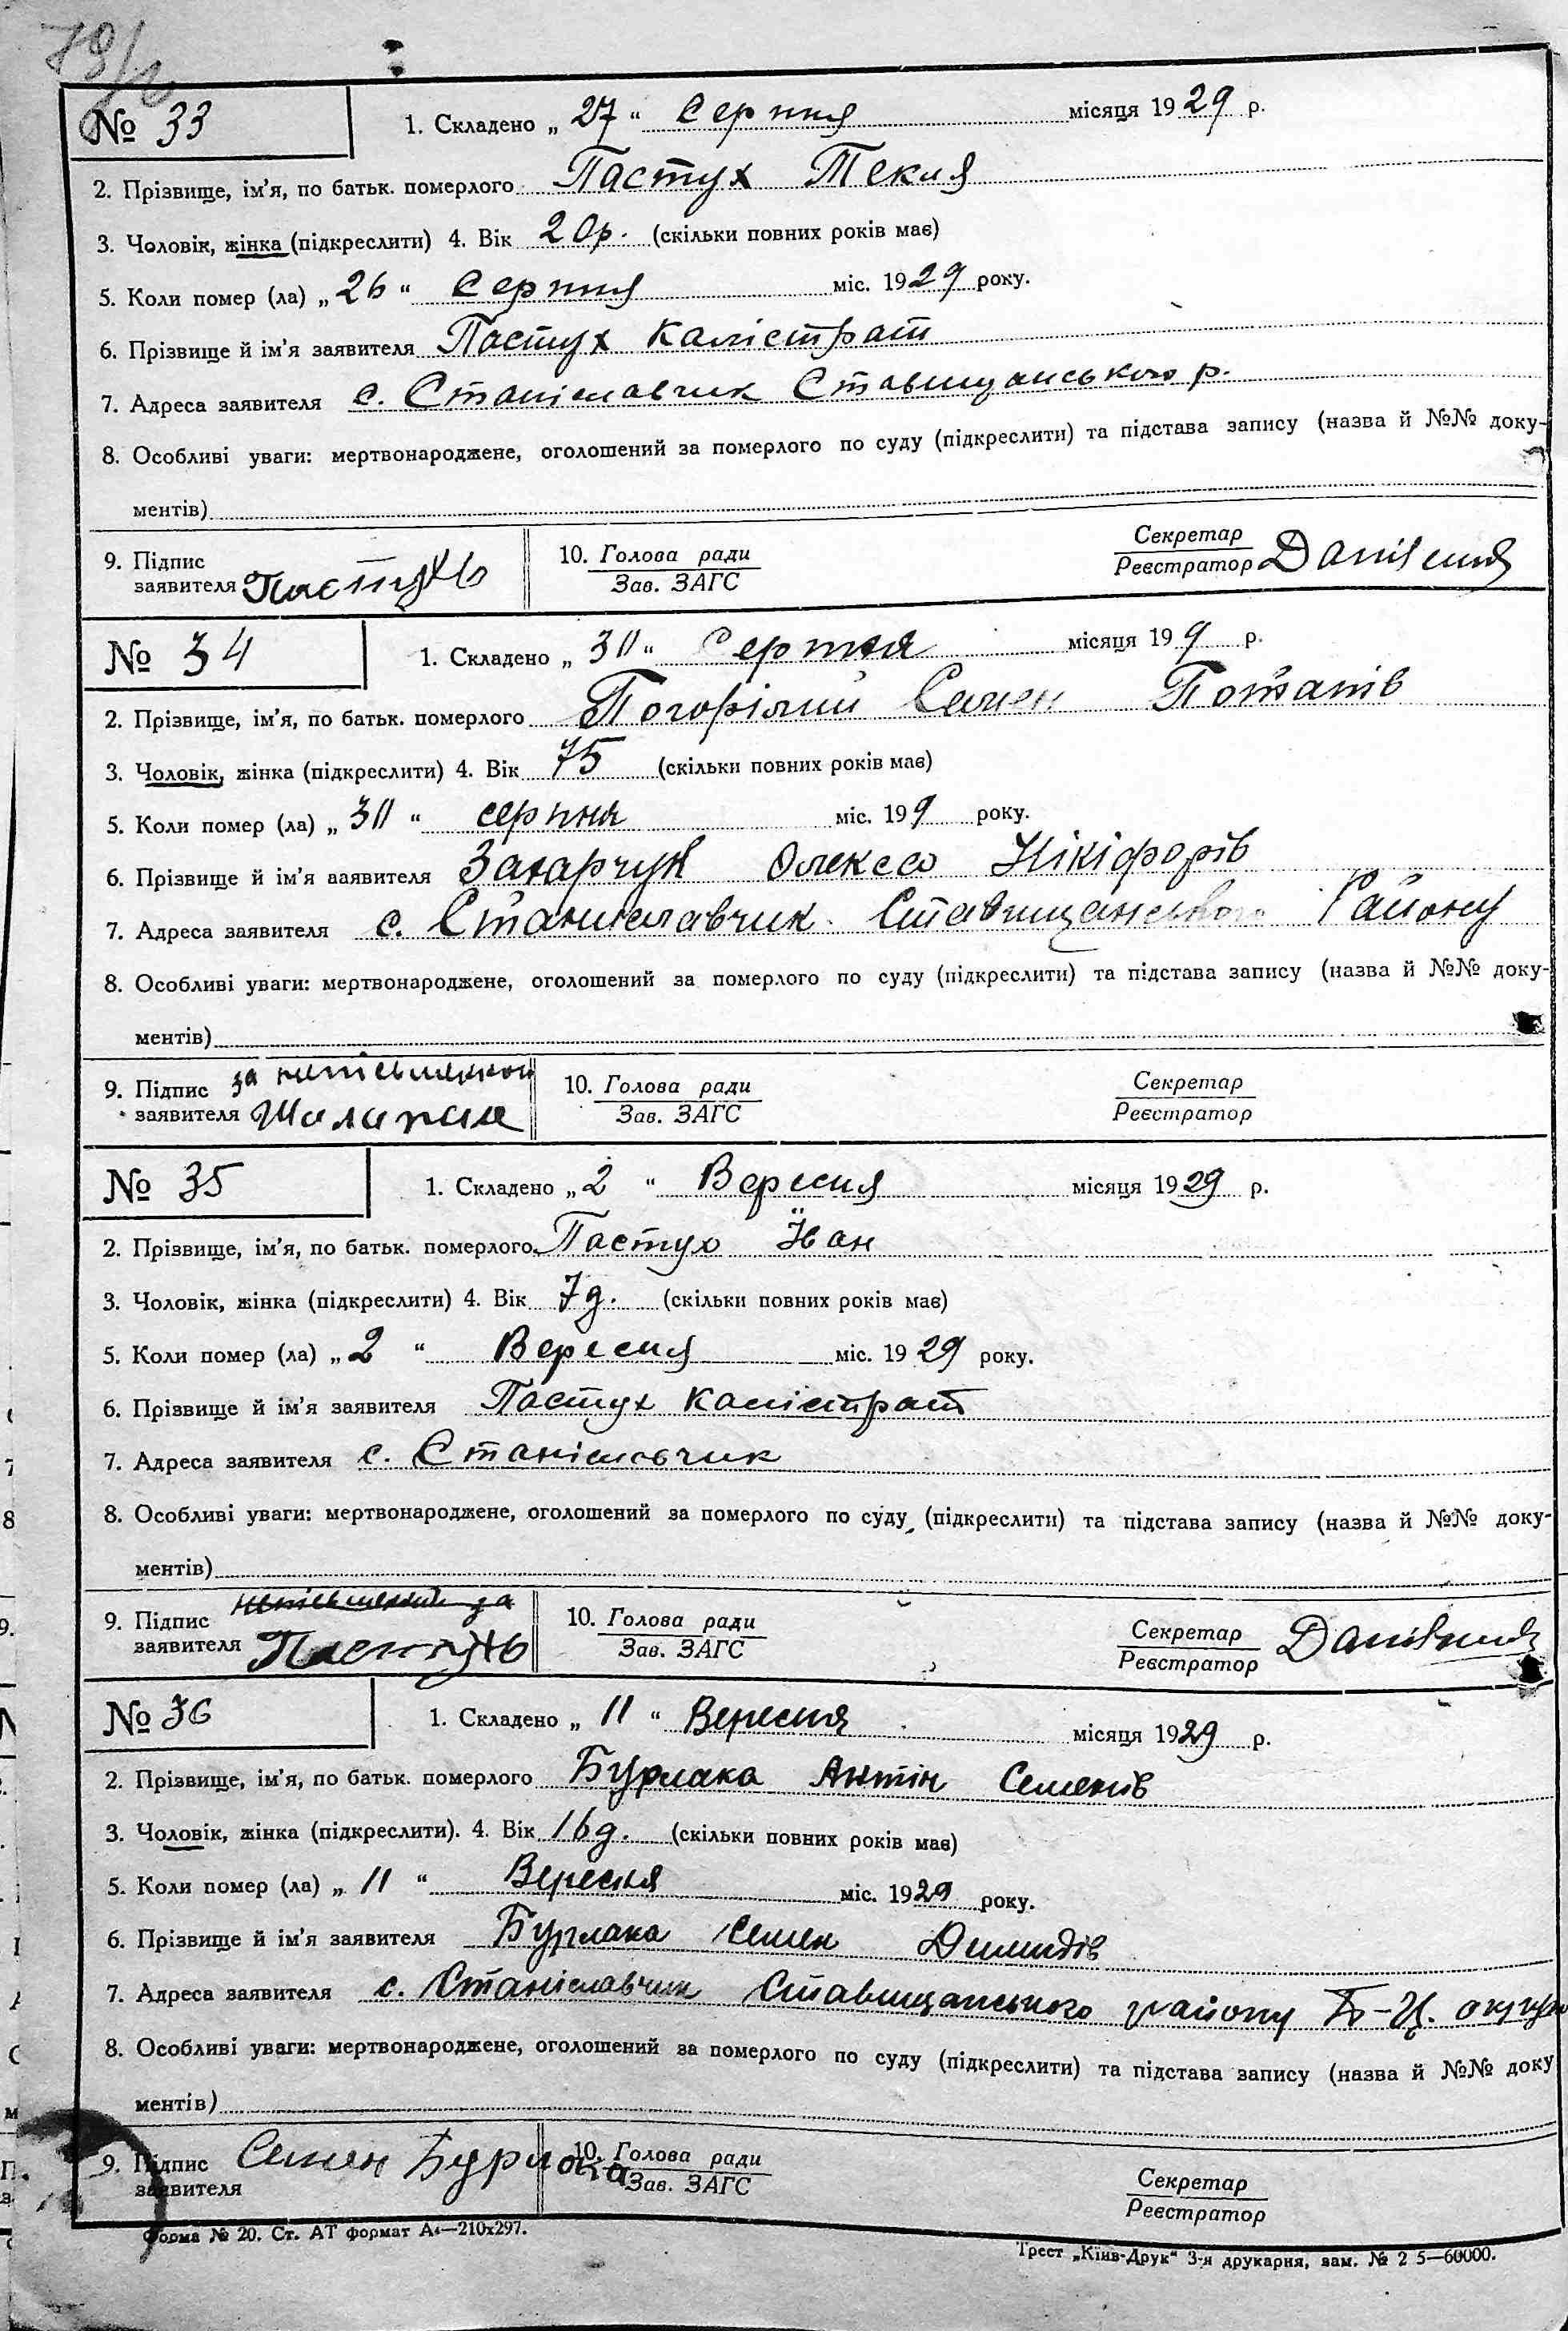 № 33
1. Складено „ 27 “ Серпня місяця 1929 р.
2. Прізвище, ім'я, по батьк. померлого Пастух Текля
3. Чоловік, жінка (підкреслити) 4. Вік 20р. (скільки повних років має)
5. Коли помер (ла) „ 26 “ Серпня міс. 1929 року.
6. Прізвище й ім'я заявителя Пастух Калістрат
7. Адреса заявителя с. Станіславчик Ставищанського р.
8. Особливі уваги: мертвонароджене, оголошений за померлого по суду (підкреслити) та підстава запису (назва й №№ доку-
ментів)
9. Підпис заявителя Пастухъ 10. Голова ради Зав. ЗАГС Секретар Реєстратор
№ 34
1. Складено „ 30 “ Серпня місяця 19 9 р.
2. Прізвище, ім'я, по батьк. померлого Погорілий Семен Потапів
3. Чоловік, жінка (підкреслити) 4. Вік 75 (скільки повних років має)
5. Коли помер (ла) „ 30 “ серпня міс. 19 9 року.
6. Прізвище й ім'я заявителя Захарчук Олексо Нікіфорів
7. Адреса заявителя с. Станиславчик Ставищанського Району
8. Особливі уваги: мертвонароджене, оголошений за померлого по суду (підкреслити) та підстава запису (назва й №№ доку-
ментів)
9. Підпис заявителя за 10. Голова ради Зав. ЗАГС Секретар Реєстратор
№ 35
1. Складено „ 2 “ Вересня місяця 1929 р.
2. Прізвище, ім'я, по батьк. померлого Пастух Іван
3. Чоловік, жінка (підкреслити) 4. Вік 7д. (скільки повних років має)
5. Коли помер (ла) „ 2 “ Вересня міс. 1929 року.
6. Прізвище й ім'я заявителя Пастух Калістрат
7. Адреса заявителя с. Станіславчик
8. Особливі уваги: мертвонароджене, оголошений за померлого по суду (підкреслити) та підстава запису (назва й №№ доку-
ментів)
9. Підпис заявителя Пастухъ 10. Голова ради Зав. ЗАГС Секретар Реєстратор
№ 36
1. Складено „ 11 “ Вересня місяця 1929 р.
2. Прізвище, ім'я, по батьк. померлого Бурлака Антін Семенів
3. Чоловік, жінка (підкреслити). 4. Вік 16д. (скільки повних років має)
5. Коли помер (ла) „ 11 “ Вересня міс. 1929 року.
6. Прізвище й ім'я заявителя Бурлака Семен Демидів
7. Адреса заявителя с. Станіславчик Ставищанського району Б-Ц. округи
8. Особливі уваги: мертвонароджене, оголошений за померлого по суду (підкреслити) та підстава запису (назва й №№ доку
ментів)
9. Підпис заявителя Семен Бурлака 10. Голова ради Зав. ЗАГС Секретар Реєстратор
Форма № 20. Ст. АТ формат А4—210х297.
Трест „Київ-Друк“ 3-я друкарня, зам. № 2 5—60000.